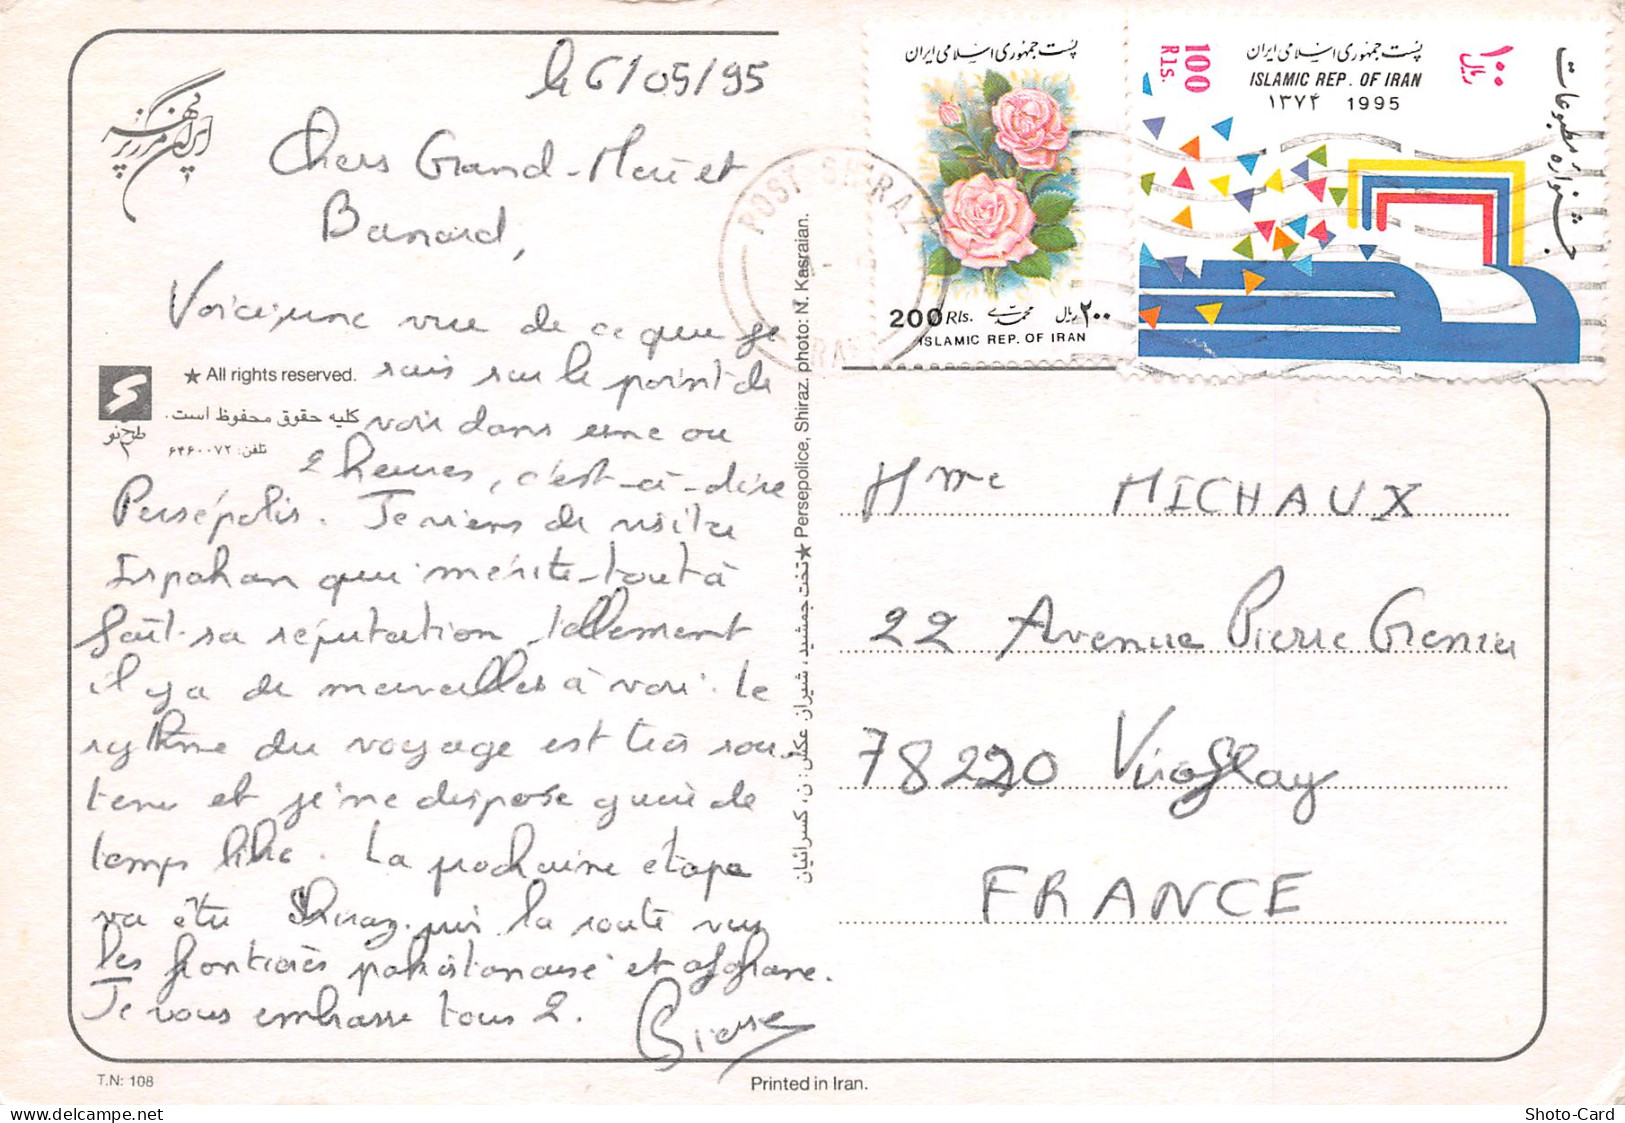 le 6/05/95
Chers Grand-Mère et
Bernard,
Voici une vue de ce que je
suis sur le point de
voir dans une ou
2 heures, c'est-à-dire
Persépolis. Je viens de visiter
Ispahan qui mérite tout à
fait sa réputation tellement
il y a de merveilles à voir. Le
rythme du voyage est très sou-
tenu et je ne dispose guère de
temps libre. La prochaine étape
va être Shiraz, puis la route vers
les frontières pakistanaise et afghane.
Je vous embrasse tous 2.
Pierre
ایران کهن مرز پرگهر
★ All rights reserved.
کلیه حقوق محفوظ است.
تلفن: ۶۴۶۰۰۷۲
طرح نو
T.N: 108
Printed in Iran.
تخت جمشید، شیراز. عکاس: ن، کسرائیان ★ Persepolice, Shiraz. photo: N. Kasraian.
POST SHIRAZ
پست جمهوری اسلامی ایران
200 Rls. محمدی ۲۰۰ ریال
ISLAMIC REP. OF IRAN
100 Rls.
پست جمهوری اسلامی ایران
ISLAMIC REP. OF IRAN
۱۳۷۴ 1995
۱۰۰ ریال
جشنواره مطبوعات
Mme MICHAUX
22 Avenue Pierre Grenier
78220 Viroflay
FRANCE
Shoto-Card